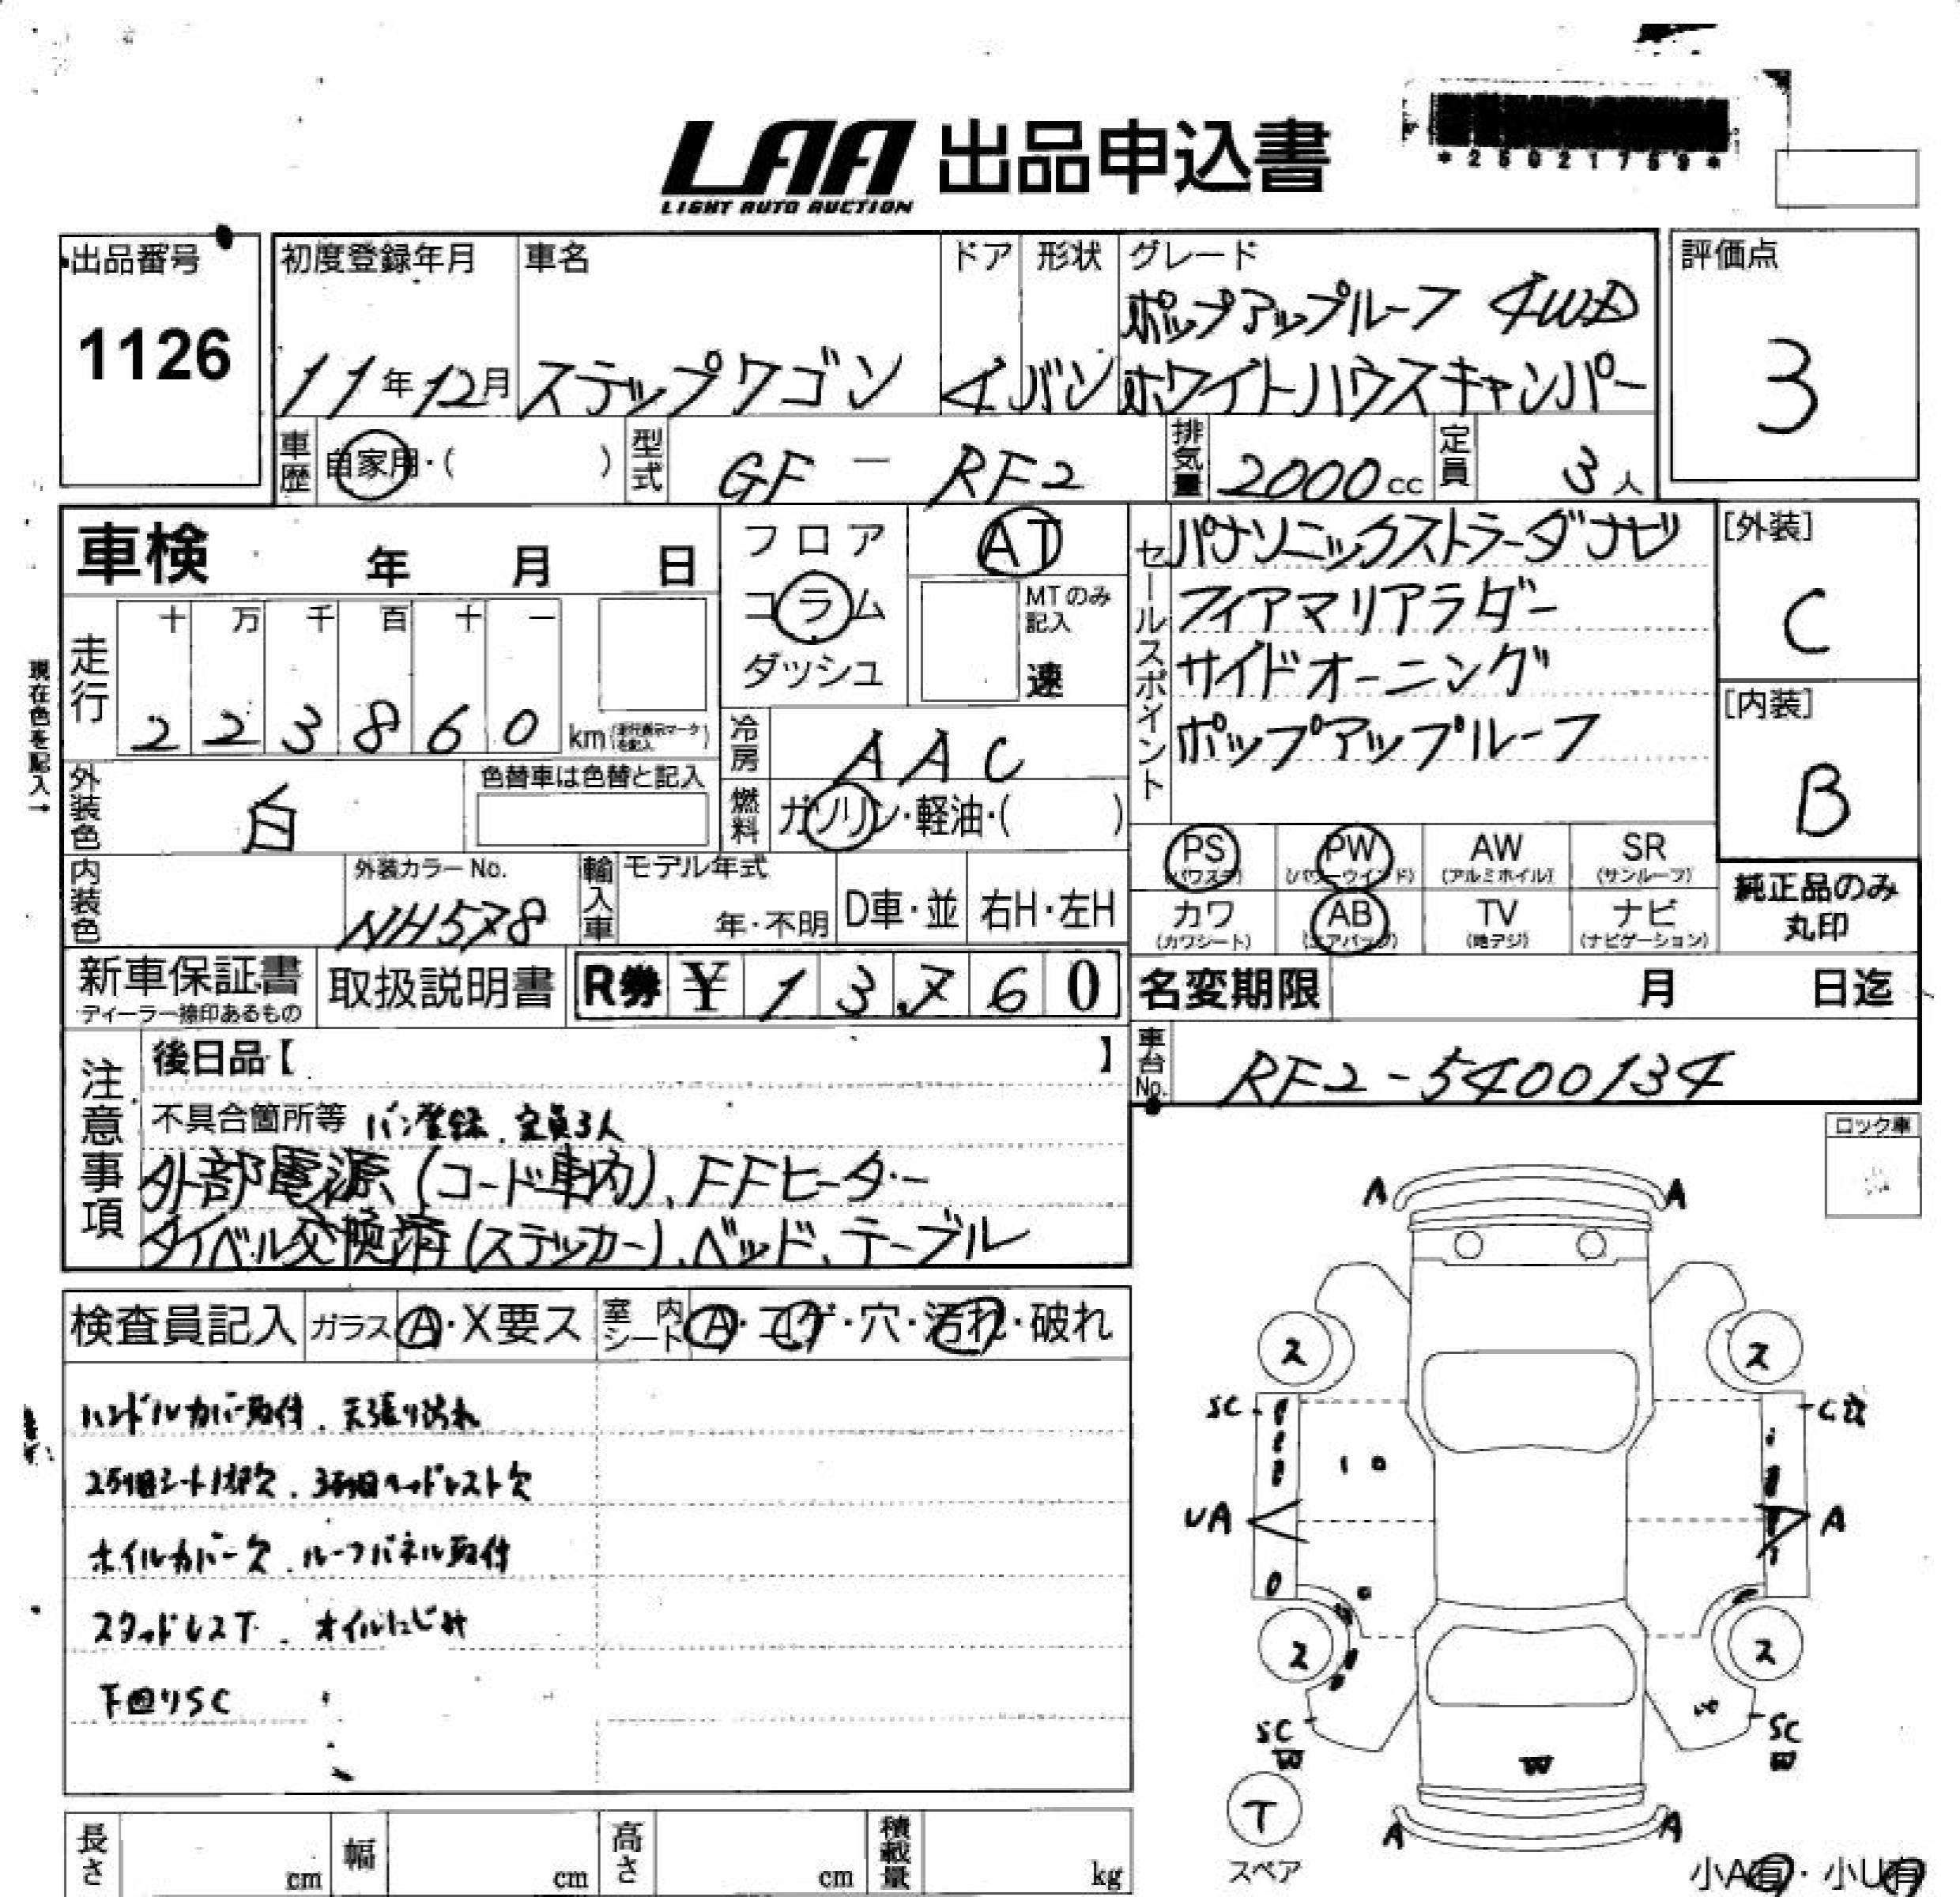 LAA 出品申込書
LIGHT AUTO AUCTION
*25021759*
出品番号
1126
初度登録年月
11年12月
車名
ステップワゴン
ドア
4
形状
バン
グレード
ポップアップルーフ 4WD
ホワイトハウスキャンパー
評価点
3
車歴
自家用・( )
型式
GF - RF2
排気量
2000cc
定員
3人
車検 年 月 日
フロア
コラム
ダッシュ
AT
MTのみ
記入
速
セールスポイント
パナソニックストラーダナビ
フィアマリアラダー
サイドオーニング
ポップアップルーフ
[外装]
C
[内装]
B
現在色を記入→
走行
十 万 千 百 十 一
2 2 3 8 6 0 km
冷房
AAC
外装色
白
色替車は色替と記入
燃料
ガソリン・軽油・( )
PS
(パワステ)
PW
(パワーウインド)
AW
(アルミホイル)
SR
(サンルーフ)
カワ
(カワシート)
AB
(エアバッグ)
TV
(地デジ)
ナビ
(ナビゲーション)
純正品のみ
丸印
内装色
外装カラーNo.
NH578
輸入車
モデル年式
年・不明
D車・並
右H・左H
新車保証書
ディーラー捺印あるもの
取扱説明書
R券 ¥ 13760
名変期限 月 日迄
車台No.
RF2-5400134
注意事項
後日品【 】
不具合箇所等 バン登録、定員3人
外部電源(コード車内)、FFヒーター
タイベル交換済(ステッカー)、ベッド、テーブル
ロック車
検査員記入
ガラス A・X要ス
室内シート A・コゲ・穴・汚れ・破れ
ハンドルカバー取付、天張り汚れ
ホイルカバー欠、ルーフパネル取付
スタッドレスT、オイルにじみ
下回りSC
A A
2 2
SC
UA A
2 2
SC SC
W W W
T
スペア
A A
小A有・小U有
長さ cm
幅 cm
高さ cm
積載量 kg